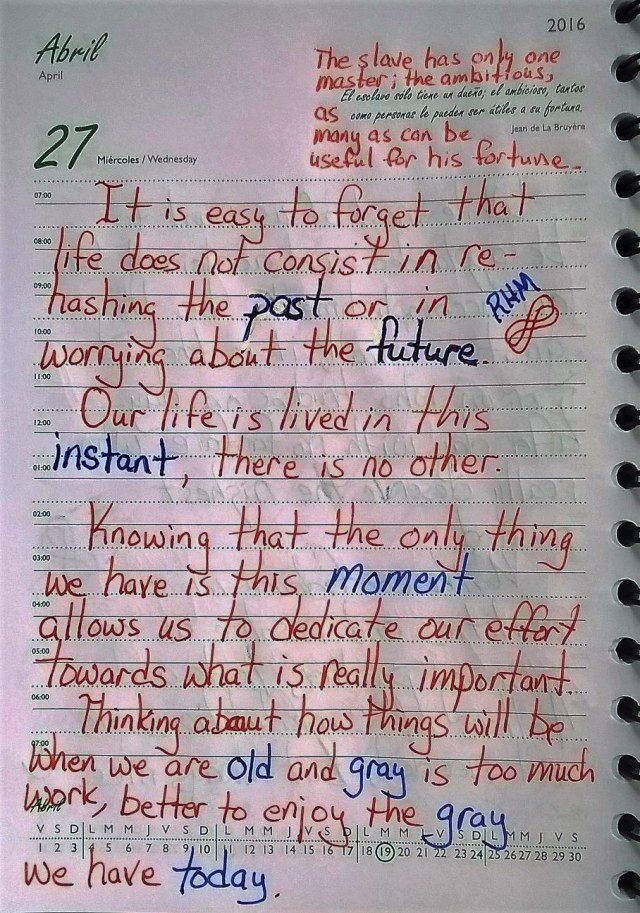 2016
Abril
April
The slave has only one
master; the ambitious,
El esclavo sólo tiene un dueño; el ambicioso, tantos
as
como personas le pueden ser útiles a su fortuna.
many as can be
Jean de La Bruyère
useful for his fortune.
27 Miércoles / Wednesday
07:00
It is easy to forget that
08:00
life does not consist in re-
09:00
hashing the past or in
RHM
10:00
worrying about the future.
11:00
Our life is lived in this
12:00
instant, there is no other.
01:00
02:00
Knowing that the only thing
03:00
we have is this moment
04:00
allows us to dedicate our effort
05:00
towards what is really important.
06:00
Thinking about how things will be
07:00
when we are old and gray is too much
work, better to enjoy the gray
Abril
V S D L M M J V S D L M M J V S D L M M J V S D L M M J V S
1 2 3 4 5 6 7 8 9 10 11 12 13 14 15 16 17 18 19 20 21 22 23 24 25 26 27 28 29 30
we have today.